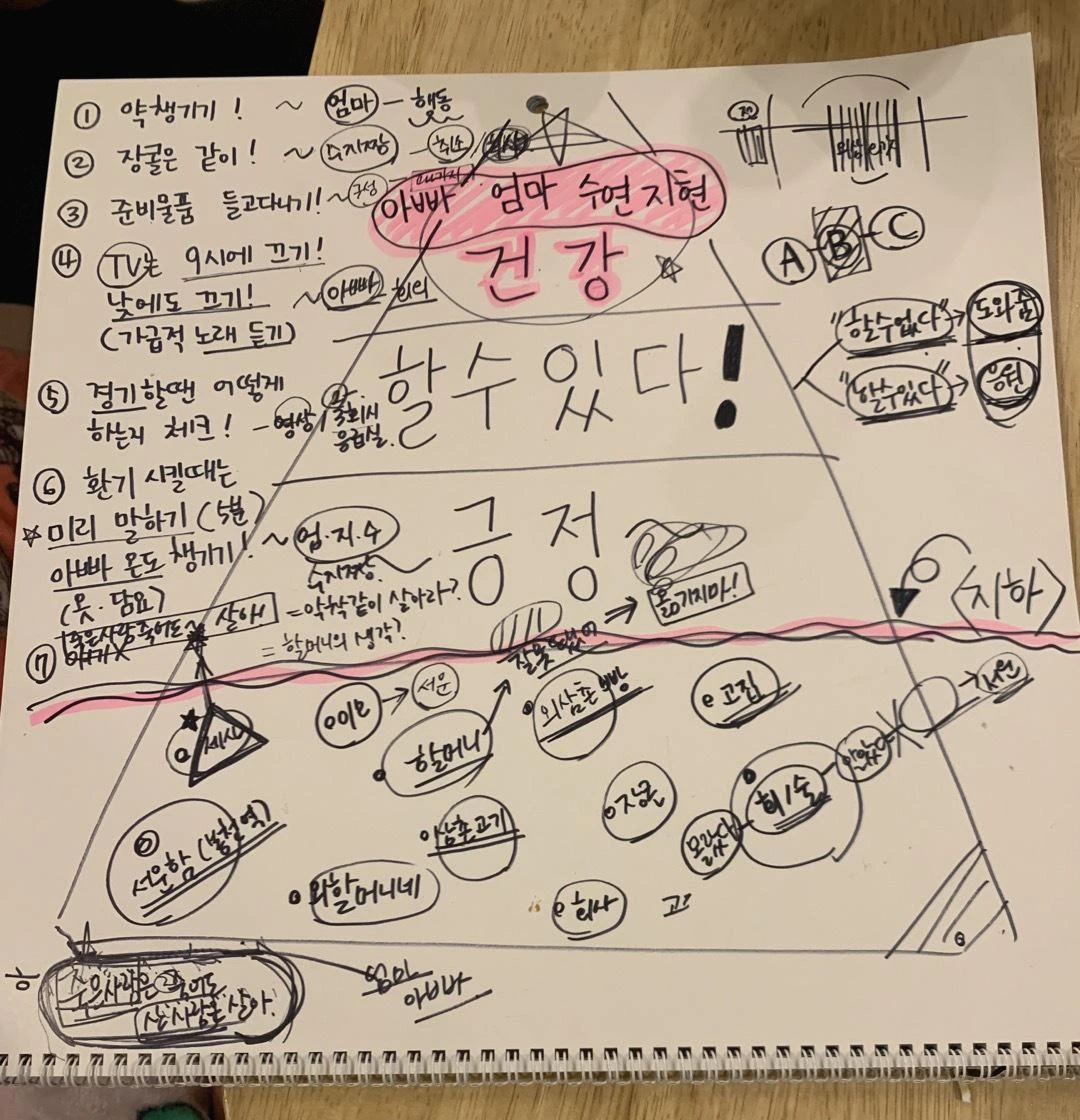 ① 약챙기기! ~ 엄마 - 행동
② 장볼은 같이! ~ 수지짱 - 취소
③ 준비물품 들고다니기! ~ 구성
④ TV는 9시에 끄기!
낮에도 끄기! ~ 아빠
(가급적 노래 듣기)
⑤ 경기할땐 어떻게
하는지 체크! - 영상
응급실.
⑥ 환기 시킬때는
☆ 미리 말하기 (5분)
아빠 온도 챙기기! ~ 엄.지.수
(옷.담요) 수지짱.
⑦ 죽은사람죽어도 ~ 살아!
= 악착같이 살아라?
= 할머니의 생각?
아빠 엄마 수연 지현
건강
할수있다!
긍정
옮기지마!
A B C
"할수없다" → 도와줌
"할수있다" → 응원
<지하>
제사
이모 → 서운
할머니
잘못했어
외삼촌
고집
서운함
이삼촌고기
장훈
몰랐다
회/술
외할머니네
회사
고
죽은사람은 죽어도
산사람은 살아.
엄마
아빠